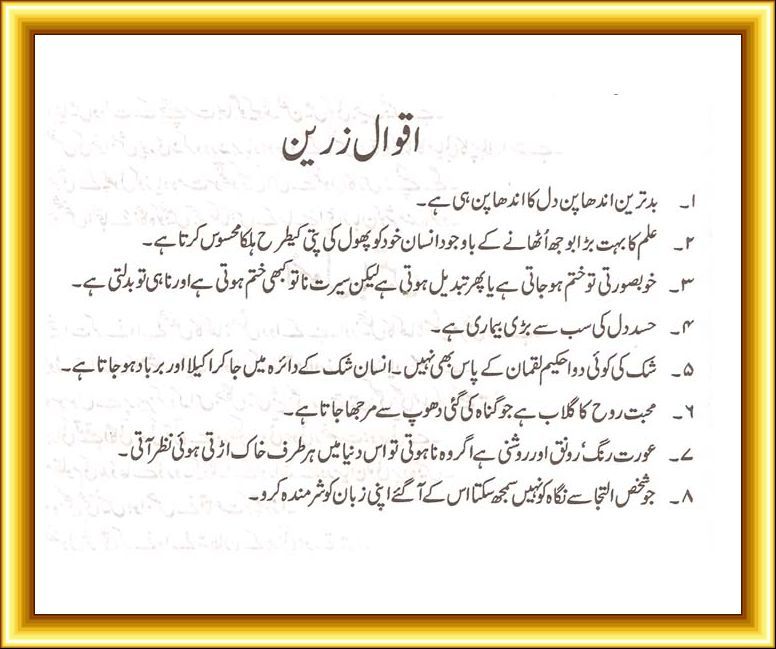 اقوال زرین
۱۔ بدترین اندھا پن دل کا اندھا پن ہی ہے۔
۲۔ علم کا بہت بڑا بوجھ اُٹھانے کے باوجود انسان خود کو پھول کی پتی کیطرح ہلکا محسوس کرتا ہے۔
۳۔ خوبصورتی تو ختم ہو جاتی ہے یا پھر تبدیل ہوتی ہے لیکن سیرت نا تو کبھی ختم ہوتی ہے اور نا ہی تو بدلتی ہے۔
۴۔ حسد دل کی سب سے بڑی بیماری ہے۔
۵۔ شک کی کوئی دوا حکیم لقمان کے پاس بھی نہیں۔ انسان شک کے دائرہ میں جا کر اکیلا اور برباد ہو جاتا ہے۔
۶۔ محبت روح کا گلاب ہے جو گناہ کی گئی دھوپ سے مرجھا جاتا ہے۔
۷۔ عورت رنگ‘ رونق اور روشنی ہے اگر وہ نا ہوتی تو اس دنیا میں ہر طرف خاک اڑتی ہوئی نظر آتی۔
۸۔ جو شخص التجا سے نگاہ کو نہیں سمجھ سکتا اس کے آگئے اپنی زبان کو شرمندہ کرو۔